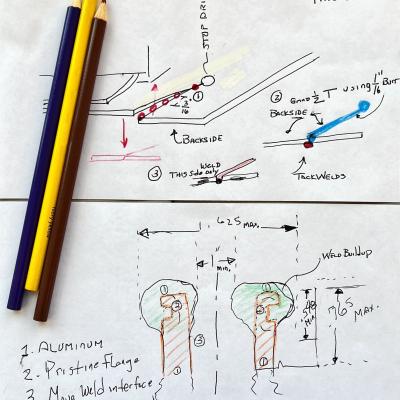 STOP DRI
3/16
①
BACKSIDE
②
Grind 1/2 T using 1/16" Butt
BACKSIDE
TACKWELDS
③
WELD
THIS Side only
.625 MAX.
1"
MIN.
WELD BUILDUP
①
②
③
①
①
②
①
MIN
.765
MAX.
1. ALUMINUM
2. Pristine Flange
3 Weld interface